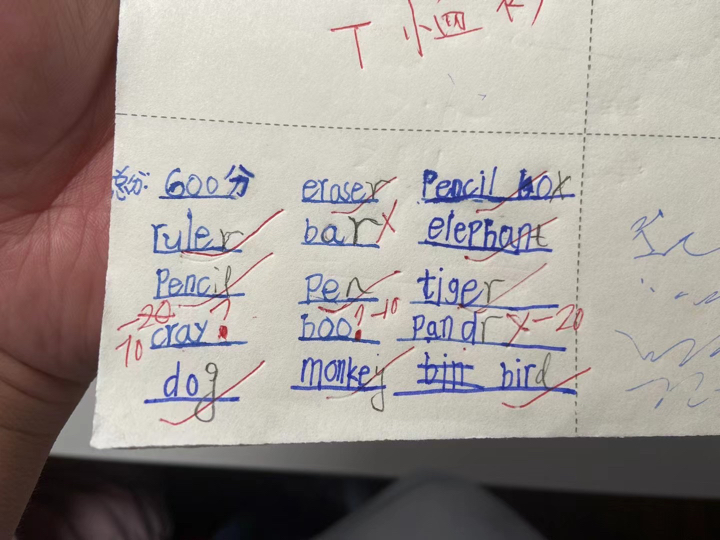 总分: 600分 eraser Pencil box
ruler bar elephant
Pencil Pen tiger
-20 cray ? boo ? -10 Pandr -20
10
dog monkey bird